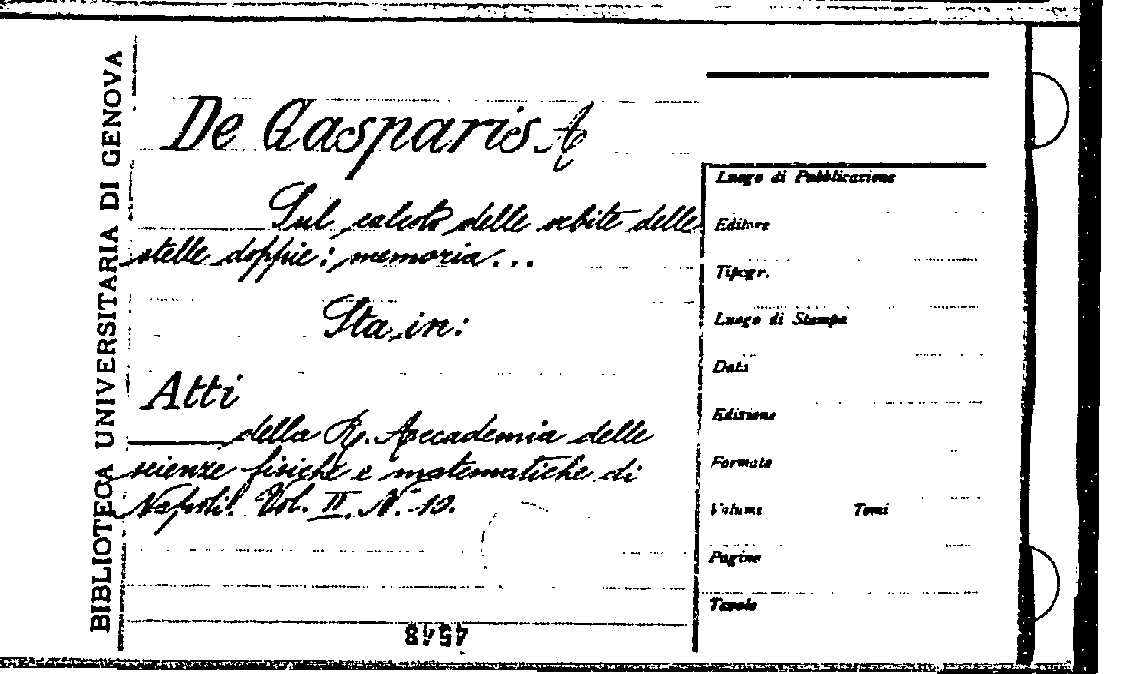 BIBLIOTECA UNIVERSITARIA DI GENOVA
De Gasparis A
Sul calcolo delle orbite delle
stelle doppie: memoria...
Sta in:
Atti
della R. Accademia delle
scienze fisiche e matematiche di
Napoli. Vol. II. N. 10.
4548
Luogo di Pubblicazione
Editore
Tipogr.
Luogo di Stampa
Data
Edizione
Formato
Volume Tomi
Pagine
Tavole